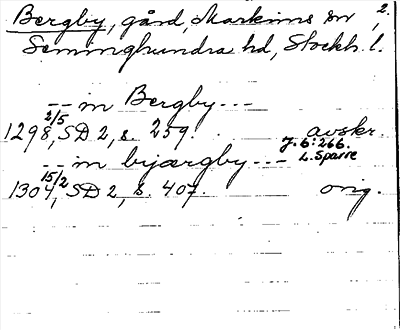 Bergby, gård, Markims sn 2.
Seminghundra hd, Stockh. l.
-- in Bergby ---
2/5
1298, SD 2, s. 259. avskr.
J. 6:266.
L. Sparre
-- in biærgby ---
15/2
1304, SD 2, s. 407. orig.